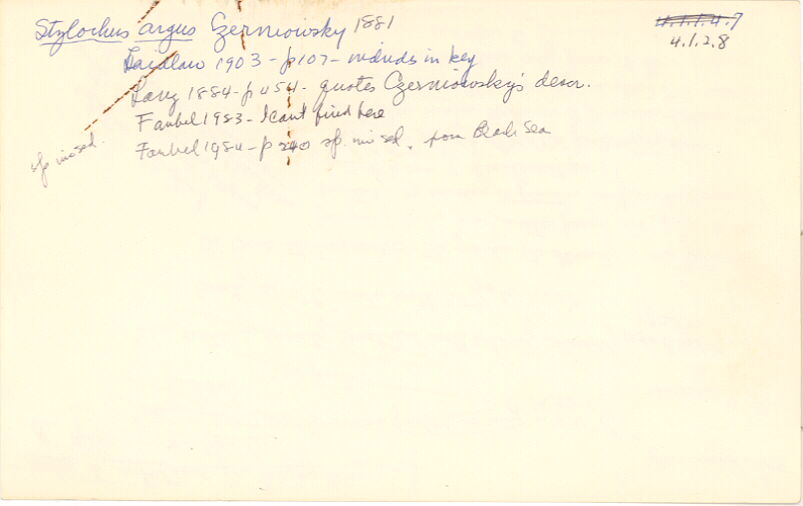 Stylochus argus Czerniowsky 1881
4.1.1.4.7
4.1.2.8
Laidlaw 1903 - p107 - includs in key
Lang 1884 - p 454 - quotes Czerniowsky's descr.
Faubel 1983 - I cant find here
Faubel 1984 - p 240 sp. inc sed. from Black Sea
sp inc sed.